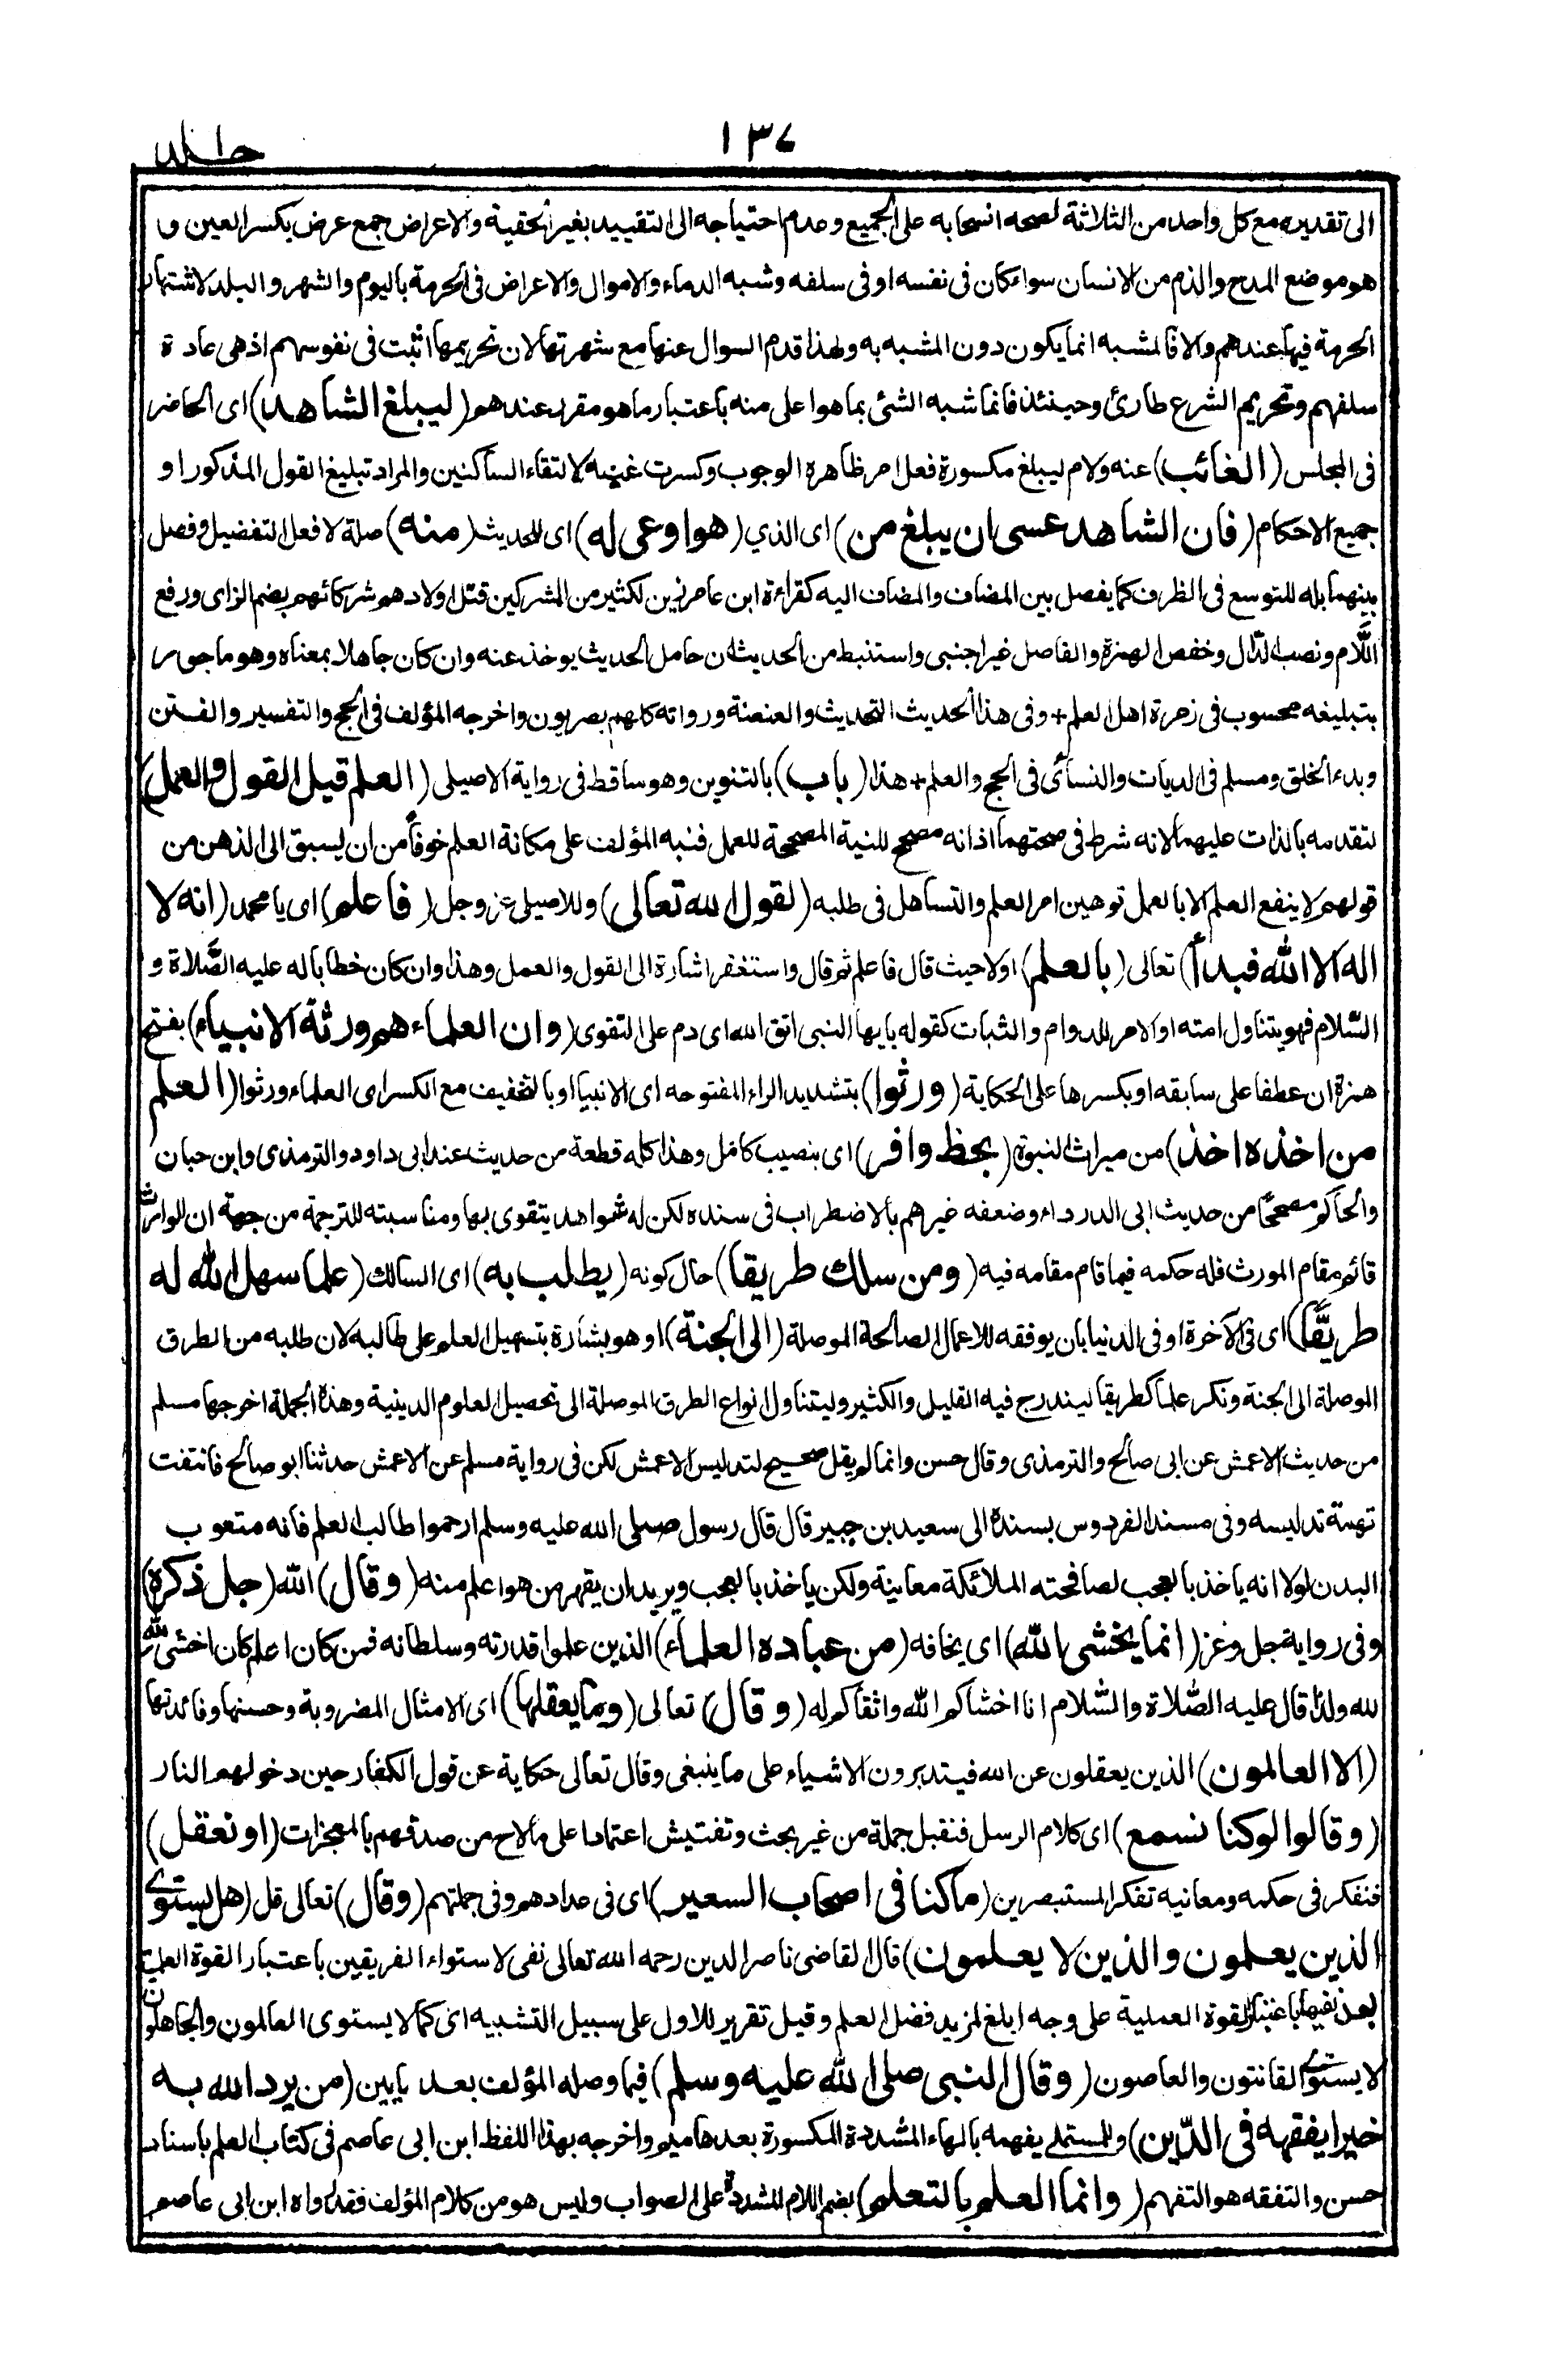 ١٣٧
جلد
الى تقديره مع كل واحد من الثلاثة لصحه انسحابه على الجميع وعدم احتياجه الى التقييد بغير الحقية والاعراض جمع عرض بكسر العين و
هو موضع المدح والذم من الانسان سواء كان فى نفسه او فى سلفه وشبه الدماء والاموال والاعراض فى الحرمة باليوم والشهر والبلد لاشتهار
الحرمة فيها عندهم والا فالمشبه انما يكون دون المشبه به ولهذا قدم السوال عنها مع شهرتها لان تحريمها اثبت فى نفوسهم اذ هى عادة
سلفهم وتحريم الشرع طارئ وحينئذ فانما شبه الشئ بما هو اعلى منه باعتبار ما هو مقرر عندهو (ليبلغ الشاهد) اى الحاضر
فى المجلس (الغائب) عنه ولام ليبلغ مكسورة فعل امر ظاهره الوجوب وكسرت غينه لالتقاء الساكنين والمراد تبليغ القول المذكور او
جميع الاحكام (فان الشاهد عسى ان يبلغ من) اى الذي (هو اوعى له) اى للحديث (منه) صلة لافعل التفضيل وفصل
بينهما بله للتوسع فى الظرف كما يفصل بين المضاف والمضاف اليه كقراءة ابن عامر زين لكثير من المشركين قتل اولادهم شركائهم بضم الزاى ورفع
اللّام ونصب الدّال وخفض الهمزة والفاصل غير اجنبى واستنبط من الحديث ان حامل الحديث يوخذ عنه وان كان جاهلا بمعناه وهو ماجور
بتبليغه محسوب فى زمرة اهل العلم + وفى هذا الحديث التحديث والعنعنة ورواته كلهم بصريون واخرجه المؤلف فى الحج والتفسير والفتن
وبدء الخلق ومسلم فى الديات والنسائى فى الحج والعلم + هذا (باب) بالتنوين وهو ساقط فى رواية الاصيلى (العلم قبل القول والعمل)
لتقدمه بالذات عليهما لانه شرط فى صحتهما اذ انه مصحح للنية المصححة للعمل فنبه المؤلف على مكانة العلم خوفاً من ان يسبق الى الذهن من
قولهم لا ينفع العلم الا بالعمل توهين امر العلم والتساهل فى طلبه (لقول الله تعالى) وللاصيلى عز وجل (فاعلم) اى يا محمد (انه لا
اله الا الله فبدأ) تعالى (بالعلم) اولا حيث قال فاعلم ثم قال واستغفر اشارة الى القول والعمل وهذا وان كان خطابا له عليه الصّلاة و
السّلام فهو يتناول امته او الامر للدوام والثبات كقوله يايها النبى اتق الله اى دم على التقوى (وان العلماء هم ورثة الانبياء) بفتح
همزة ان عطفا على سابقه او بكسرها على الحكاية (ورثوا) بتشديد الراء المفتوحه اى الانبيا او بالتخفيف مع الكسر اى العلماء ورثوا (العلم
من اخذه اخذ) من ميراث النبوة (بحظ وافر) اى بنصيب كامل وهذا كله قطعة من حديث عند ابى داود والترمذى وابن حبان
والحاكم مصححًا من حديث ابى الدرداء وضعفه غيرهم بالاضطراب فى سنده لكن له شواهد يتقوى بها ومناسبته للترجمة من جهة ان الوارث
قائم مقام المورث فله حكمه فيما قام مقامه فيه (ومن سلك طريقا) حال كونه (يطلب به) اى السالك (علما سهل الله له
طريقًا) اى فى الآخرة او فى الدنيا بان يوفقه للاعمال الصالحة الموصلة (الى الجنة) او هو بشارة بتسهيل العلم على طالبه لان طلبه من الطرق
الموصلة الى الجنة ونكر علما كطريقا ليندرج فيه القليل والكثير وليتناول انواع الطرق الموصلة الى تحصيل العلوم الدينية وهذه الجملة اخرجها مسلم
من حديث الاعمش عن ابى صالح والترمذى وقال حسن وانما لم يقل صحيح لتدليس الاعمش لكن فى رواية مسلم عن الاعمش حدثنا ابو صالح فانتفت
تهمة تدليسه وفى مسند الفردوس بسنده الى سعيد بن جبير قال قال رسول صلى الله عليه وسلم ارحموا طالب العلم فانه متعوب
البدن لولا انه ياخذ بالعجب لصافحته الملائكة معاينة ولكن ياخذ بالعجب ويريد ان يقهر من هو اعلم منه (وقال) الله (جل ذكره)
وفى رواية جل وعز (انما يخشى الله) اى يخافه (من عباده العلماء) الذين علموا قدرته وسلطانه فمن كان اعلم كان اخشى لله
لله ولذا قال عليه الصّلاة والسّلام انا اخشاكم الله واتقاكم له (وقال) تعالى (وما يعقلها) اى الامثال المضروبة وحسنها وفائدتها
(الا العالمون) الذين يعقلون عن الله فيتدبرون الاشياء على ما ينبغى وقال تعالى حكاية عن قول الكفار حين دخولهم النار
(وقالوا لو كنا نسمع) اى كلام الرسل فنقبل جملة من غير بحث وتفتيش اعتمادا على ما لاح من صدقهم بالمعجزات (او نعقل)
فنفكر فى حكمه ومعانيه تفكر المستبصرين (ما كنا فى اصحاب السعير) اى فى عدادهم وفى جملتهم (وقال) تعالى قل (هل يستوى
الذين يعلمون والذين لا يعلمون) قال القاضى ناصر الدين رحمه الله تعالى نفى لاستواء الفريقين باعتبار القوة العلمية
بعد نفيها باعتبار القوة العملية على وجه ابلغ لمزيد فضل العلم وقيل تقرير للاول على سبيل التشبيه اى كما لا يستوى العالمون والجاهلون
لا يستوى القانتون والعاصون (وقال النبى صلى الله عليه وسلم) فيما وصله المؤلف بعد بابين (من يرد الله به
خيرا يفقهه فى الدّين) وللمستملے يفهمه بالهاء المشددة المكسورة بعدها ميم واخرجه بهذا اللفظ ابن ابى عاصم فى كتاب العلم باسناد
حسن والتفقه هو التفهم (وانما العلم بالتعلم) بضم اللام المشددة على الصواب وليس هو من كلام المؤلف فقد رواه ابن ابى عاصم